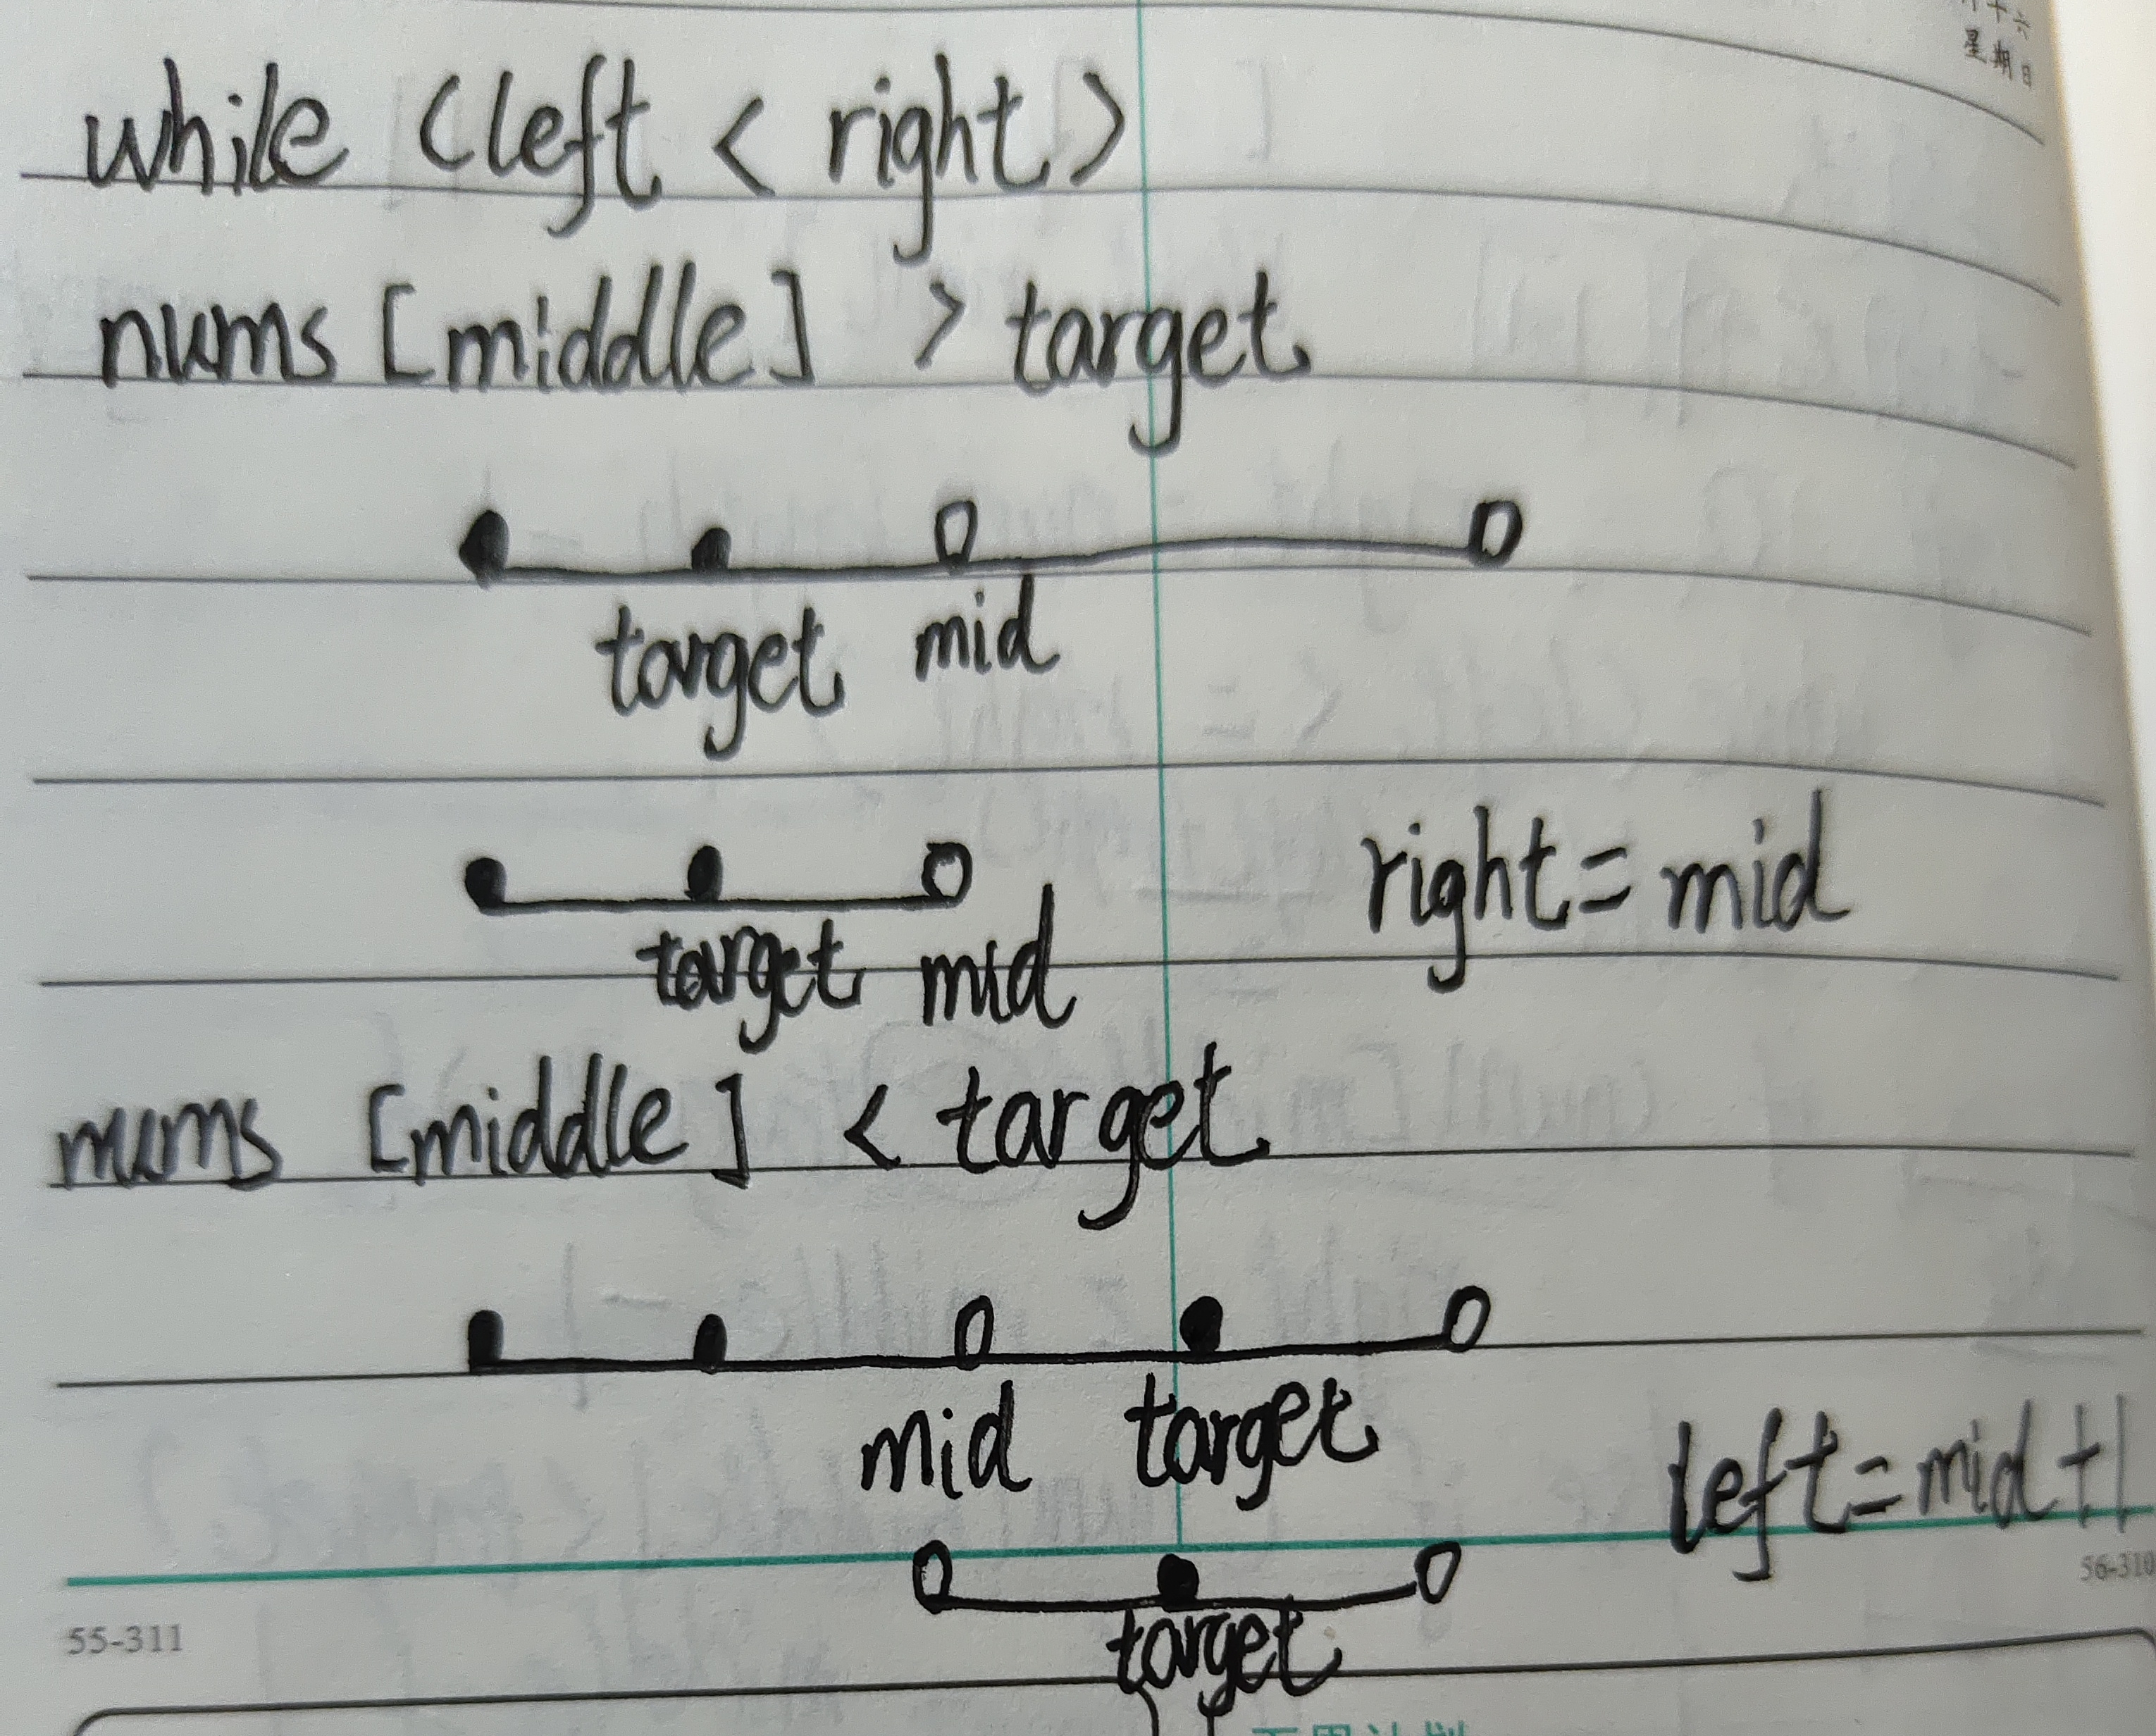 十六
星期日
while (left < right)
nums [middle] > target
target mid
right = mid
target mid
nums [middle] < target
mid target
left = mid + 1
target
55-311
56-310